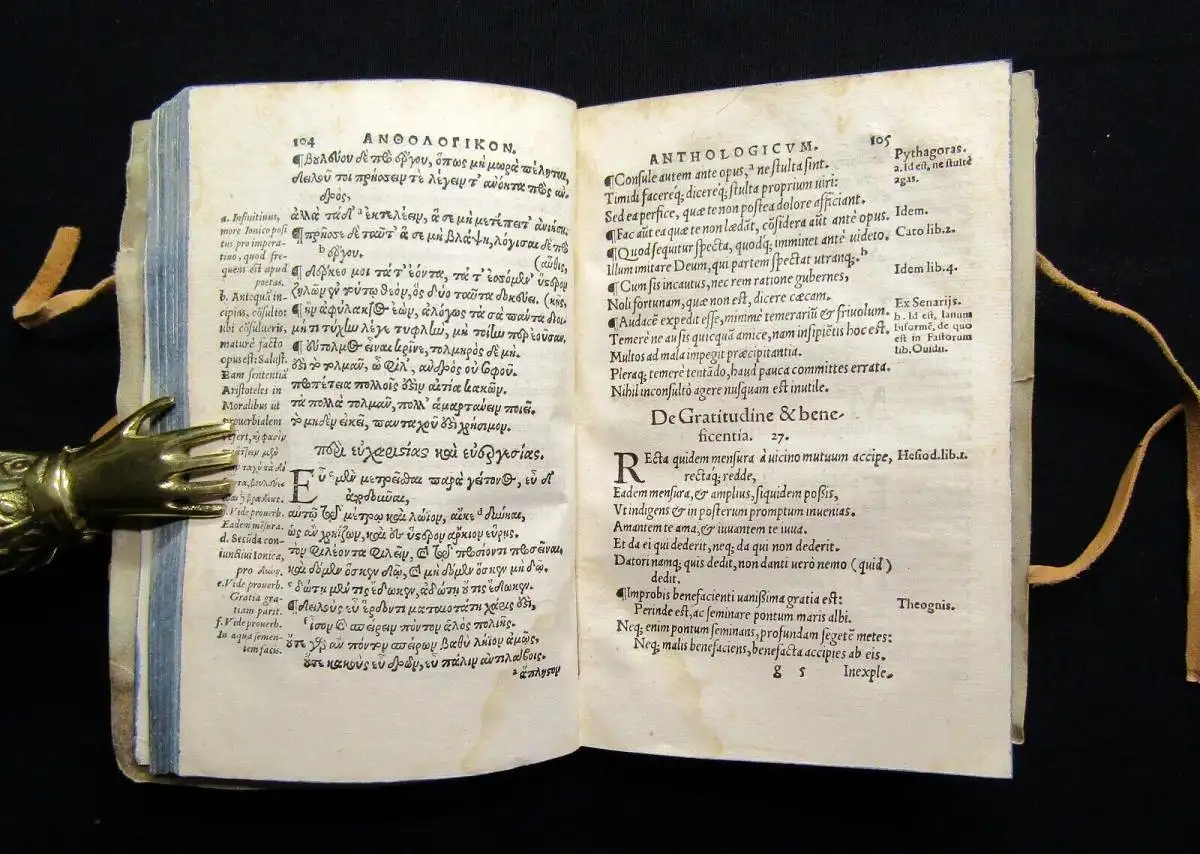 104 ΑΝΘΟΛΟΓΙΚΟΝ.
¶Βουλεύου δὲ πρὸ ἔργου, ὅπως μὴ μωρὰ πέληται,
δειλοῦ τοι πρήσσειν τε λέγειν τ' ἀνόητα πρὸς ἀν-
δρός,
ἀλλὰ τάδ' ᵃ ἐκτελέειν, ἅ σε μὴ μετέπειτ' ἀνιήσῃ.
¶πρῆσσε δὲ ταῦτ' ἅ σε μὴ βλάψῃ, λόγισαι δὲ πρὸ
ᵇ ἔργου. (αὖθις,
¶δόρκεό μοι τά τ' ἐόντα, τά τ' ἐσόμενα ὕστερον
ζηλῶν
¶ἢν ἀφύλακτος ἐὼν, ἀλόγως τὰ σὰ πάντα διοι-
μή τι τύχην λέγε τυφλὴν, μὴ τοίην περ ἐοῦσαν.
¶εὔτολμος εἶναι κρῖνε, τολμηρὸς δὲ μή.
οὔτοι τὸ τολμᾶν, ὦ φίλ', ἀνδρὸς οὐ σοφοῦ.
προπέτεια πολλοῖς ἐστὶν αἰτία κακῶν.
τὰ πολλὰ τολμᾶν, πόλλ' ἁμαρτάνειν ποιεῖ.
τὸ μηδὲν εἰκῆ, πανταχοῦ ἐστὶ χρήσιμον.
περὶ εὐχαριστίας καὶ εὐεργεσίας.
Εὖ ᶜ μὲν μετρεῖσθαι παρὰ γείτονος, εὖ δ'
ἀποδοῦναι,
αὐτῷ τῷ μέτρῳ καὶ λώϊον, αἴκε ᵈ δύνηαι,
ὡς ἂν χρῄζων, καὶ ἐς ὕστερον ἄρκιον εὕρῃς.
τὸν φιλέοντα φιλεῖν, καὶ τῷ προσιόντι προσεῖναι,
καὶ δόμεν ὅς κεν δῷ, καὶ μὴ δόμεν ὅς κεν μὴ δῷ.
ᵉ δώτῃ μέν τις ἔδωκεν, ἀδώτῃ δ' οὔτις ἔδωκεν.
¶Δειλοὺς εὖ ἔρδοντι ματαιοτάτη χάρις ἐστὶ,
ᶠ ἶσον καὶ σπείρειν πόντον ἁλὸς πολιῆς.
οὔτε γὰρ ἂν πόντον σπείρων βαθὺ λήϊον ἀμῷς,
οὔτε κακοὺς εὖ δρῶν, εὖ πάλιν ἀντιλάβοις.
ᵃ ἄπληστον
a. Infinitiuus,
more Ionico posi
tus pro impera-
tiuo, quod fre-
quens est apud
poetas.
b. Antequā in-
cipias, cōsulto:
ubi cōsulueris,
maturè facto
opus est: Salust.
Eam sententiā
Aristoteles in
Moralibus ut
prouerbialem
c. Vide prouerb.
Eadem mēsura.
d. Secūda con-
iunctiui Ionica,
pro
e. Vide prouerb.
Gratia gra-
tiam parit.
f. Vide prouerb.
In aqua semen-
tem facis.
ANTHOLOGICVM. 105
¶Consule autem ante opus, ᵃ ne stulta sint.
Timidi facereq́; dicereq́; stulta proprium uiri:
Sed ea perfice, quæ te non postea dolore afficiant.
¶Fac aut ea quæ te non lædāt, cōsidera aūt antè opus.
¶Quod sequitur specta, quodq́; imminet antè uideto.
Illum imitare Deum, qui partem spectat utranq;. ᵇ
¶Cum sis incautus, nec rem ratione gubernes,
Noli fortunam, quæ non est, dicere cæcam.
¶Audacē expedit esse, minimè temerariū & friuolum.
Temerè ne ausis quicquā amice, nam insipiētis hoc est.
Multos ad mala impegit præcipitantia.
Pleraq; temerè tentādo, haud pauca committes errata.
Nihil inconsultò agere nusquam est inutile.
De Gratitudine & bene-
ficentia. 27.
REcta quidem mensura à uicino mutuum accipe,
rectaq́; redde,
Eadem mensura, & amplius, siquidem possis,
Vt indigens & in posterum promptum inuenias.
Amantem te ama, & iuuantem te iuua.
Et da ei qui dederit, neq; da qui non dederit.
Datori namq; quis dedit, non danti uerò nemo (quid)
dedit.
¶Improbis benefacienti uanissima gratia est:
Perinde est, ac seminare pontum maris albi.
Neq; enim pontum seminans, profundam segetē metes:
Neq; malis benefaciens, benefacta accipies ab eis.
g 5 Inexple-
Pythagoras.
a. Id est, ne stultè
agas.
Idem.
Cato lib.2.
Idem lib.4.
Ex Senarijs.
b. Id est, Ianum
biformē, de quo
est in Fastorum
lib. Ouidij.
Hesiod.lib.1.
Theognis.